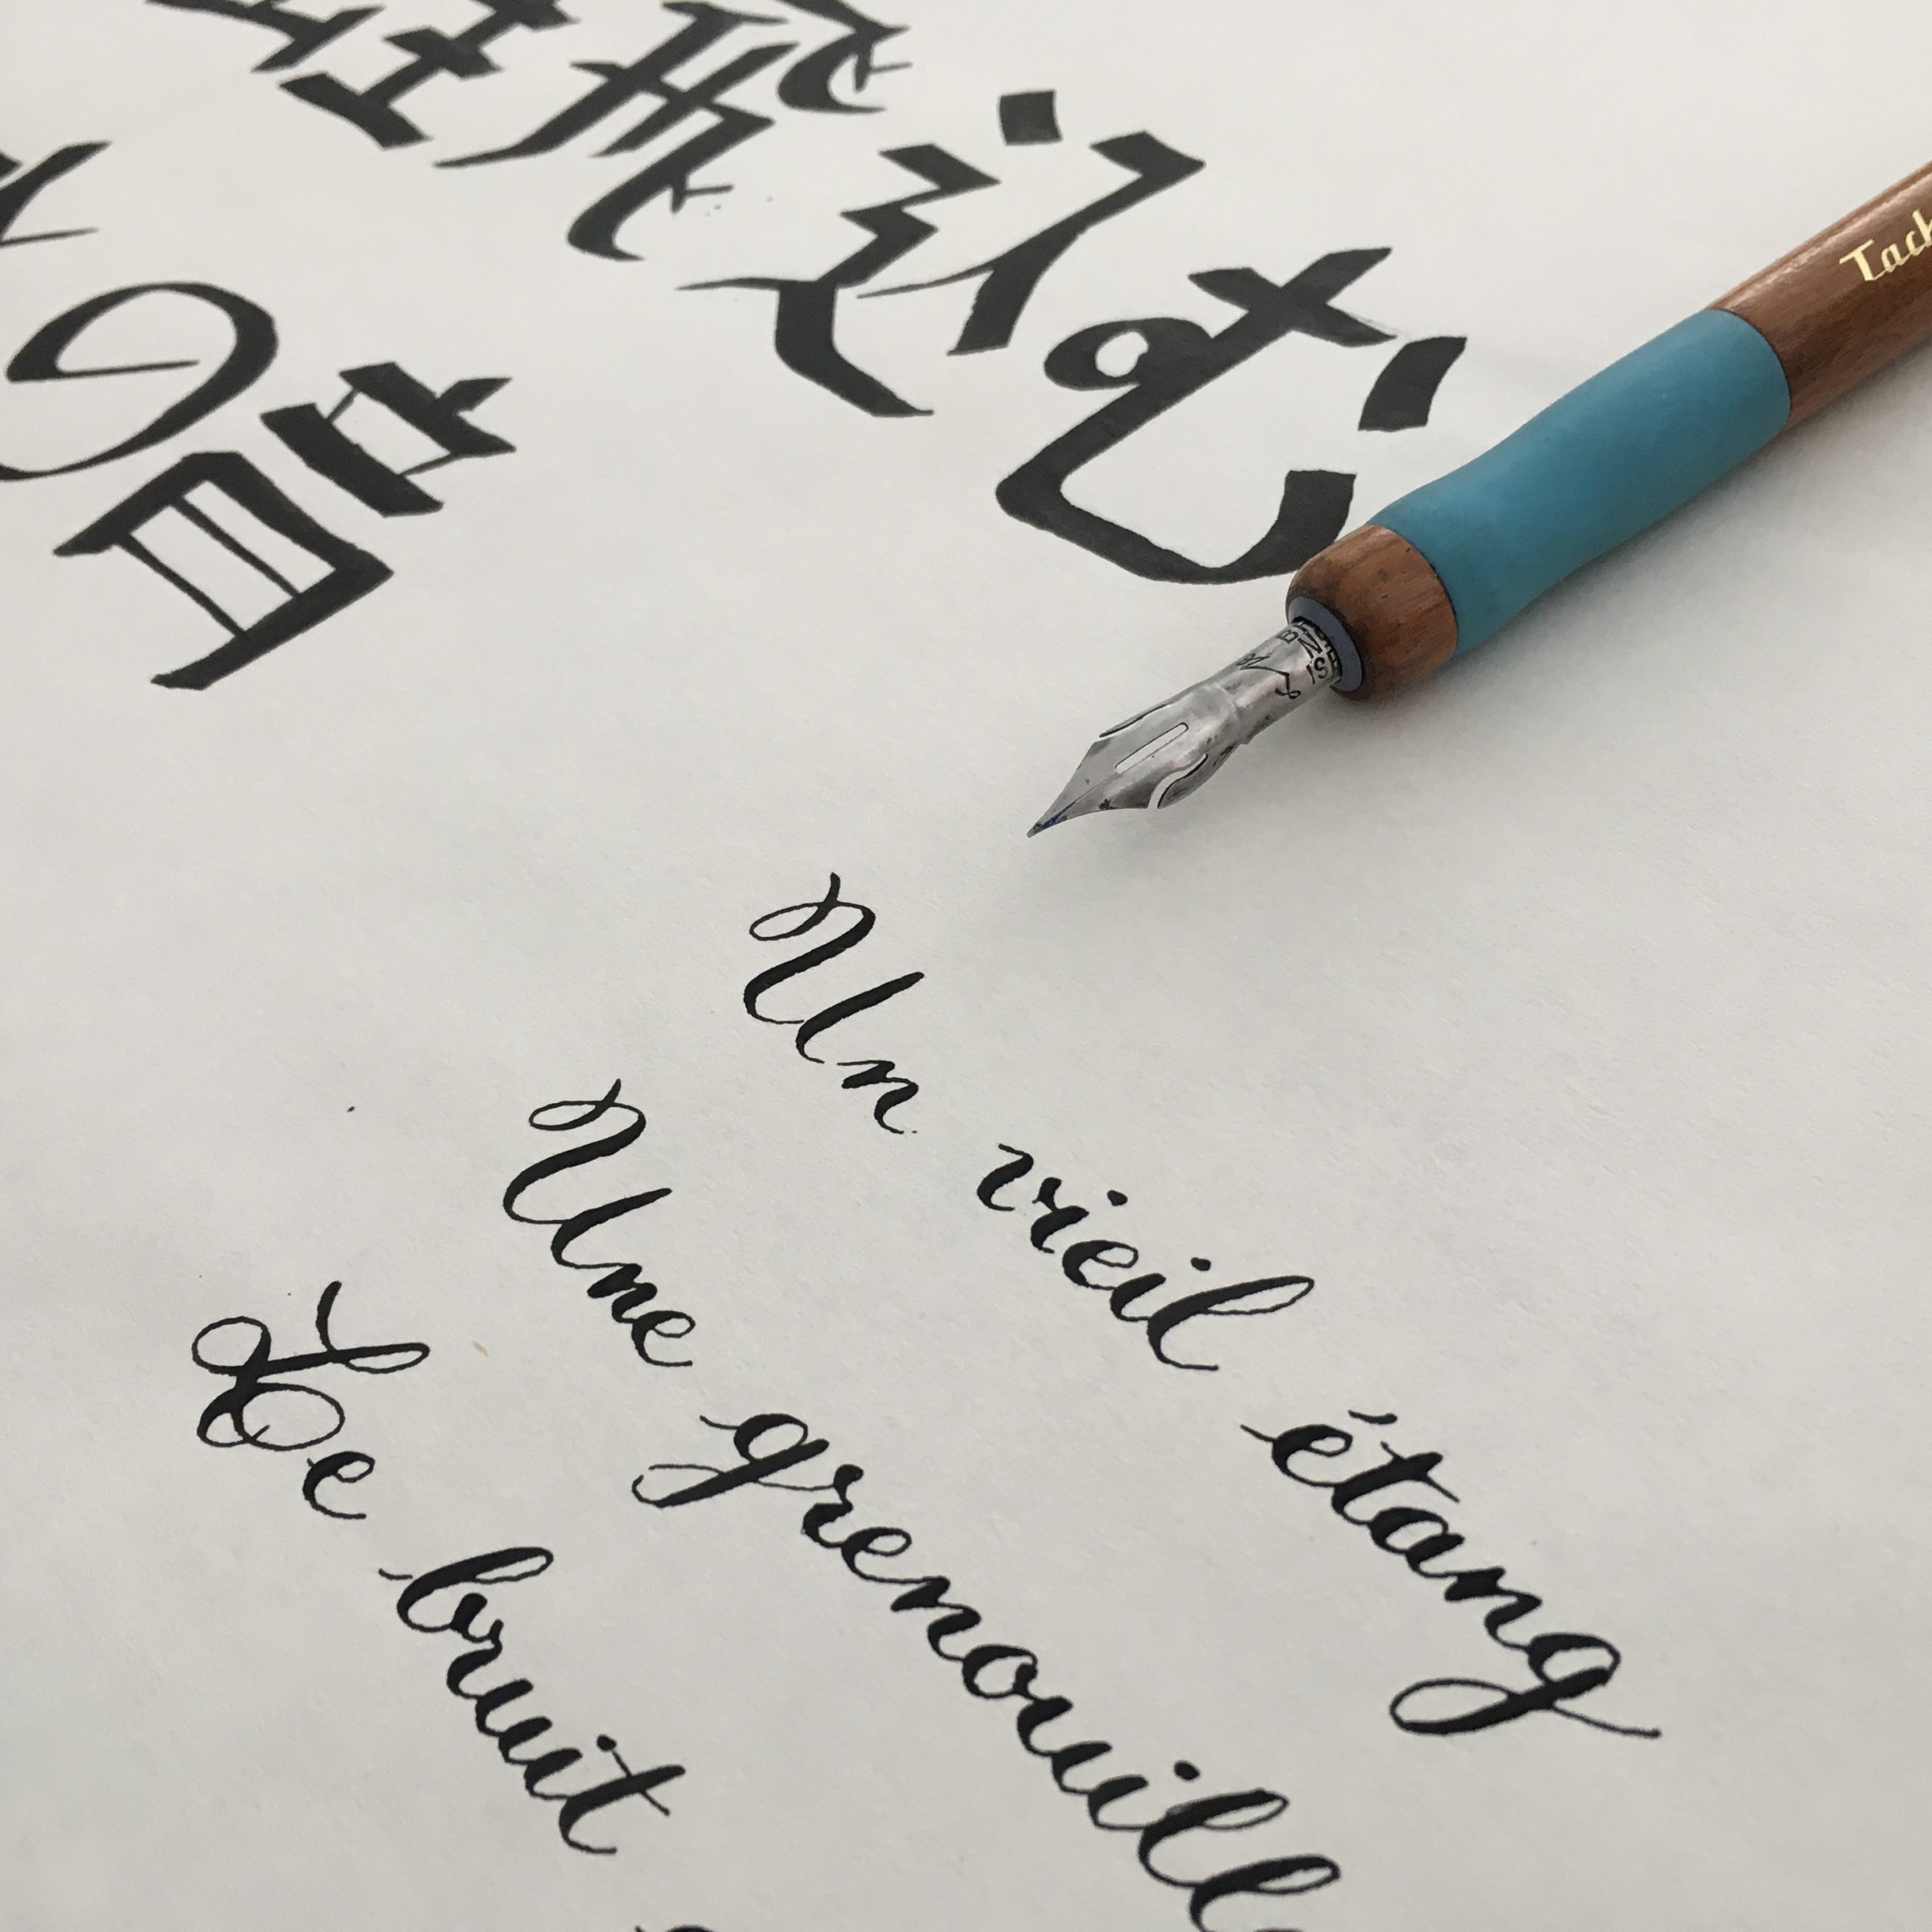 飛込む
の音
Un vieil étang
Une grenouill
Le bruit